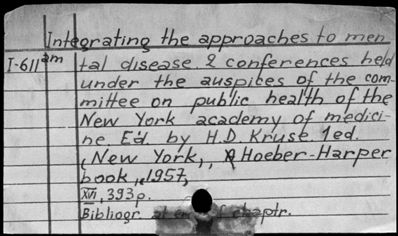 Integrating the approaches to men
I-611am tal disease 2 conferences held
under the auspices of the com-
mittee on public health of the
New York academy of medici-
ne. Ed. by H.D. Kruse. 1ed.
New York, Hoeber-Harper
book, 1957,
XVI, 393p.
Bibliogr. at en of chaptr.